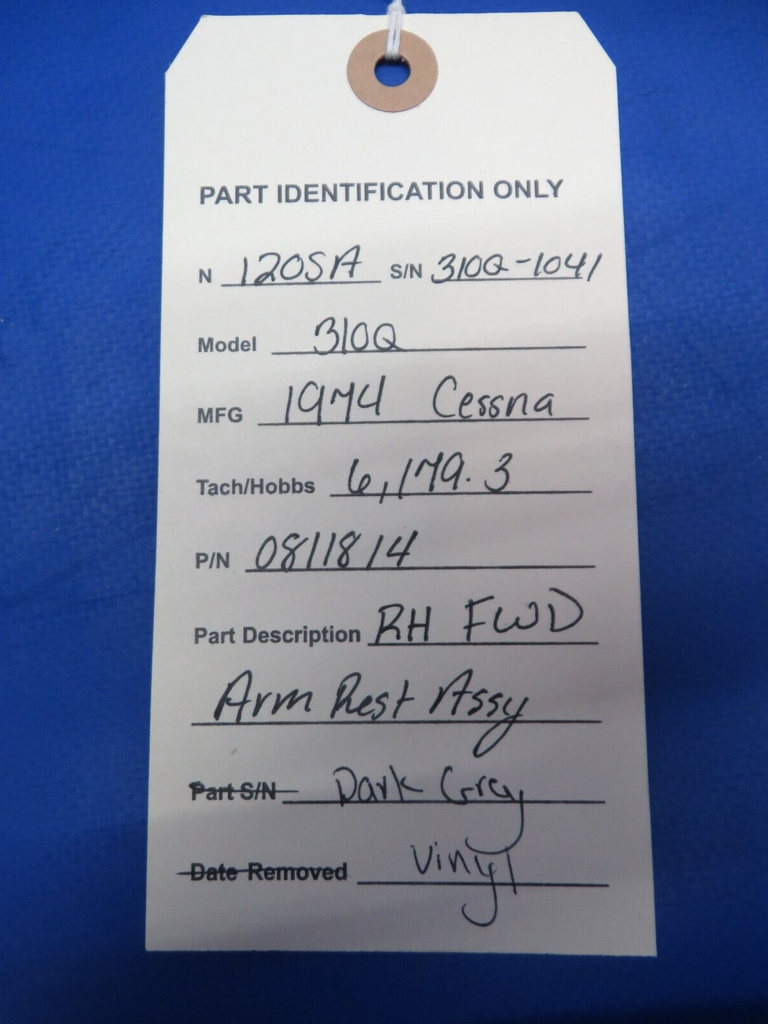 PART IDENTIFICATION ONLY
N 120SA S/N 310Q-1041
Model 310Q
MFG 1974 Cessna
Tach/Hobbs 6,179.3
P/N 0811814
Part Description RH FWD
Arm Rest Assy
Part S/N Dark Grey
Date Removed Vinyl